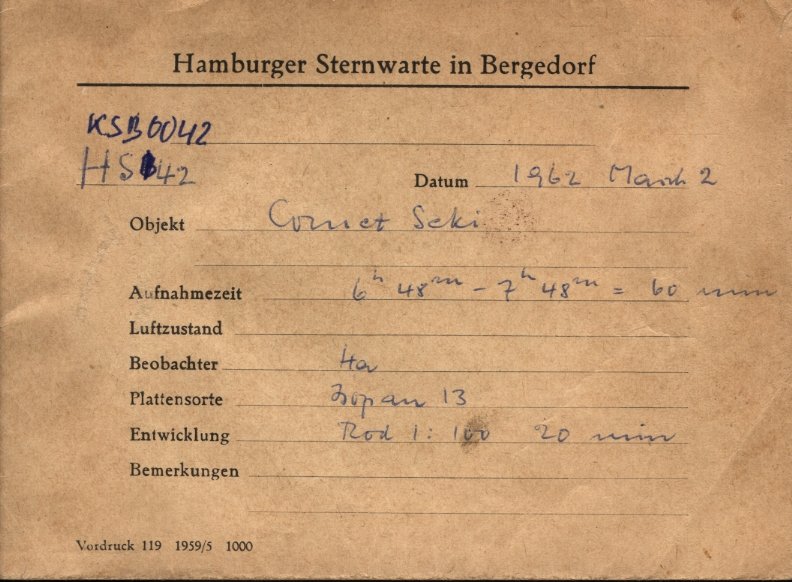 Hamburger Sternwarte in Bergedorf
KSB0042
HS 42
Datum 1962 March 2
Objekt Comet Seki
Aufnahmezeit 6h 48m - 7h 48m = 60 min
Luftzustand
Beobachter Ha
Plattensorte Isopan 13
Entwicklung Rod 1:100 20 min
Bemerkungen
Vordruck 119 1959/5 1000